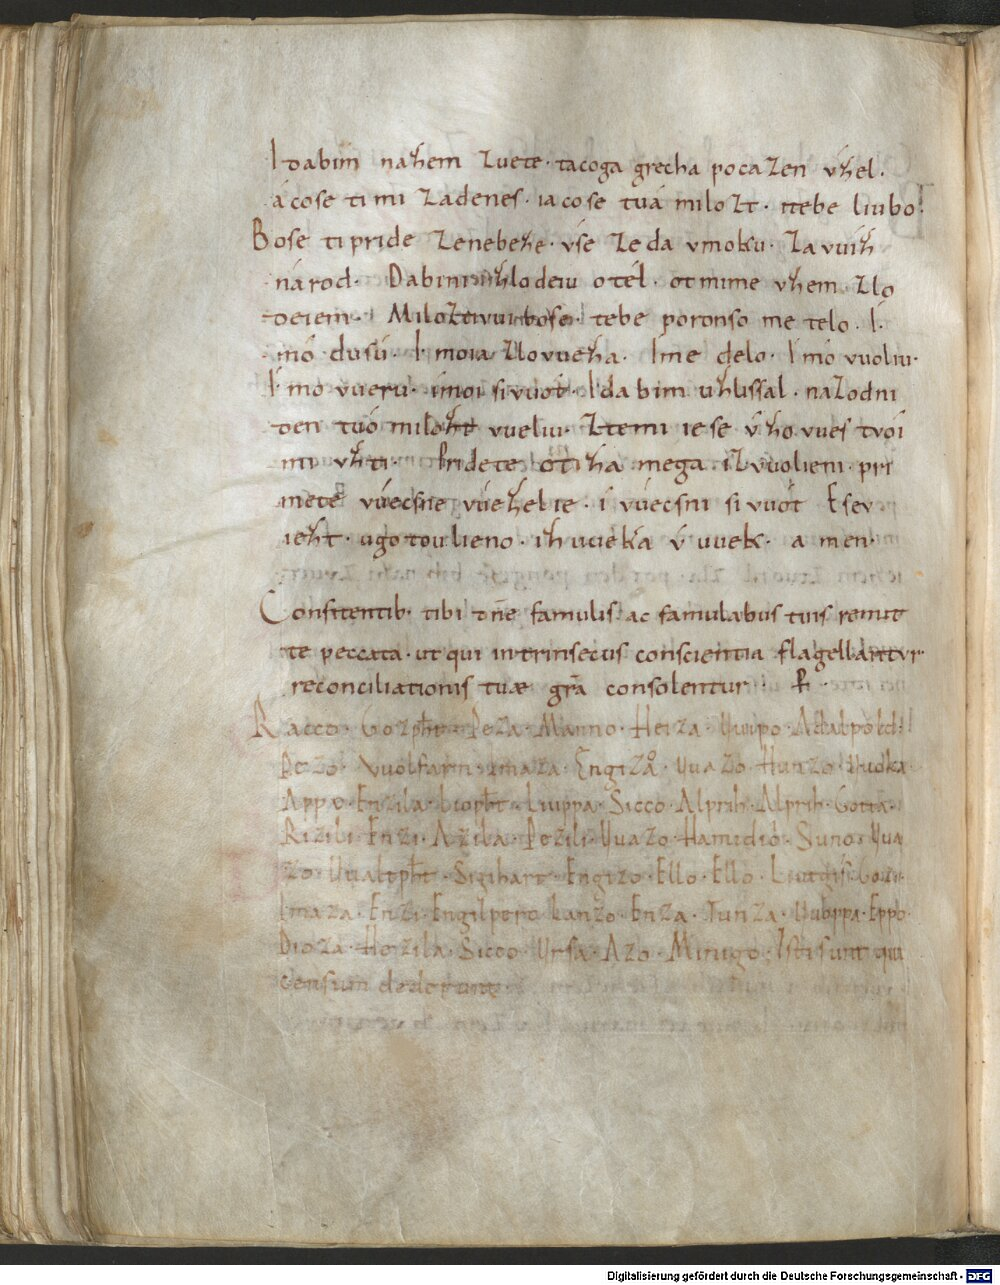 I dabim nazem zuete. tacoga grecha pocazen vzel.
iácose ti mi zadenes. iacose tuá milozt. itebe liubo.
Bose ti pride zenebeze. vse ze da vmoku. za vuiz
národ. Dabini zlodeiu otél. otmime vzem zlo
deiem. Milozeivui bose. tebe poronso me telo. I.
mó dusú. I. moia zlovueza. Ime delo. I mó vuoliu.
I. mó vueru. i moi sivuót. I dabim uzlissal. nazodni
den tuó milozt vueliu. ztemi iese vzovues tvoí
mi vzti. Pridete otiza mega izvuolieni. pri
mete vuecsne vuezelie. i vuecsni sivuót Esev
iezt. ugotoulieno. iz uuekaí v uuek. amen.
Confitentib. tibi dñe famulis. ac famulabus tuis remit
te peccata. ut qui intrinsecus conscientia flagellantur.
reconciliationis tuæ gr̄a consolentur.
Racco. Gozpht. Peza. Manno. Heiza. Uuipo. Adalpold.
Pezo. Vuolfarn. Imaza. Engiza. Uuazo. Hunzo. Uuoka.
Appo. Enzila. Liopht. Liuppa. Sicco. Alprih. Alprih. Gotta.
Rizili. Enzi. Azila. Pezili. Uuazo. Hamidio. Suno. Uua
zo. Uualtpht. Sigihart. Engizo. Ello. Ello. Liutgis.
Imaza. Enzi. Engilpero. Lanzo. Enza. Tunza. Uubppa. Eppo.
Dioza. Hezila. Sicco. Ursa. Azo. Minigo. Isti sunt qui
censum dederunt
Digitalisierung gefördert durch die Deutsche Forschungsgemeinschaft - DFG